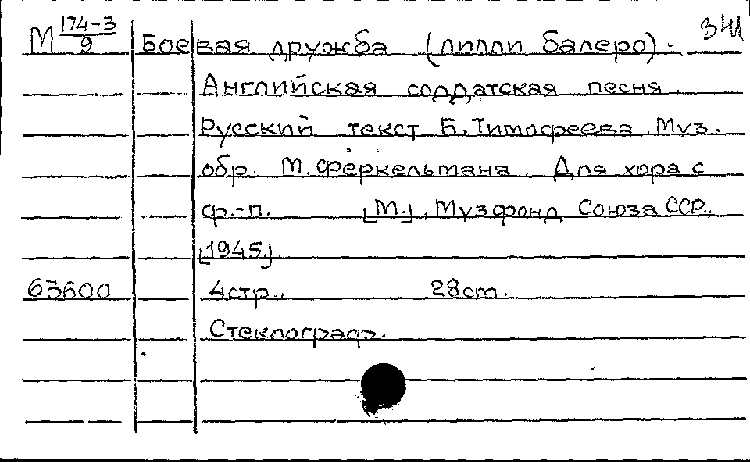 М 174-3/9 Боевая дружба (лилли балеро). 341
Английская солдатская песня.
Русский текст Б. Тимофеева. Муз.
обр. М. Феркельмана. Для хора с
ф.-п. [М.], Музфонд Союза ССР,
[1945]
63600 4стр., 28cm.
Стеклограф.